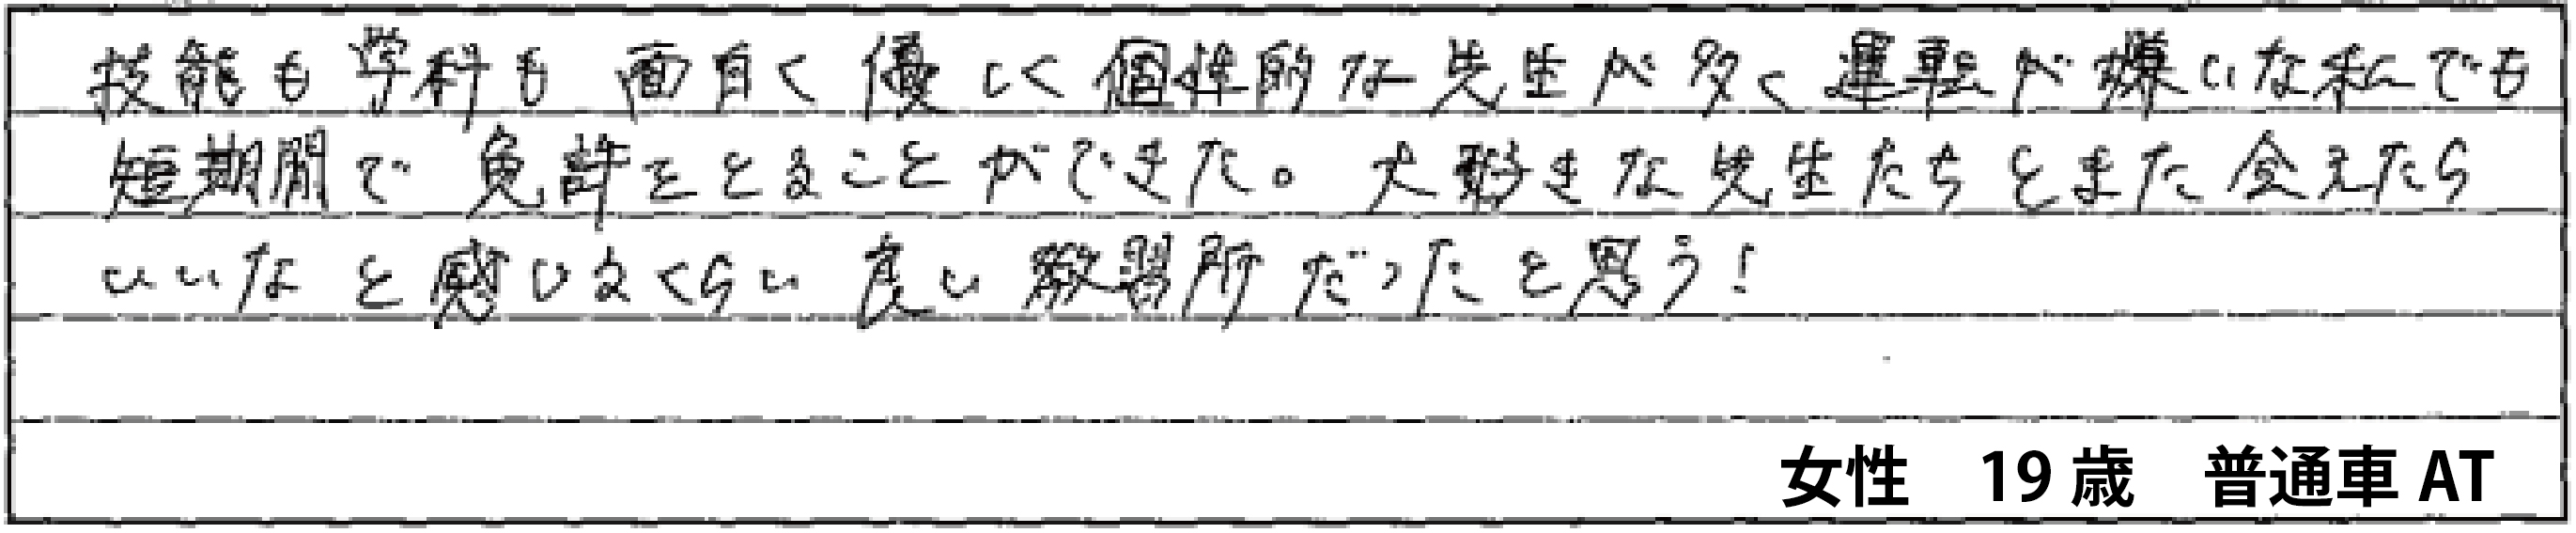 技能も学科も面白く優しく個性的な先生が多く運転が嫌いな私でも
短期間で免許をとることができた。大好きな先生たちとまた会えたら
いいなと感じるくらい良い教習所だったと思う!
女性 19歳 普通車AT